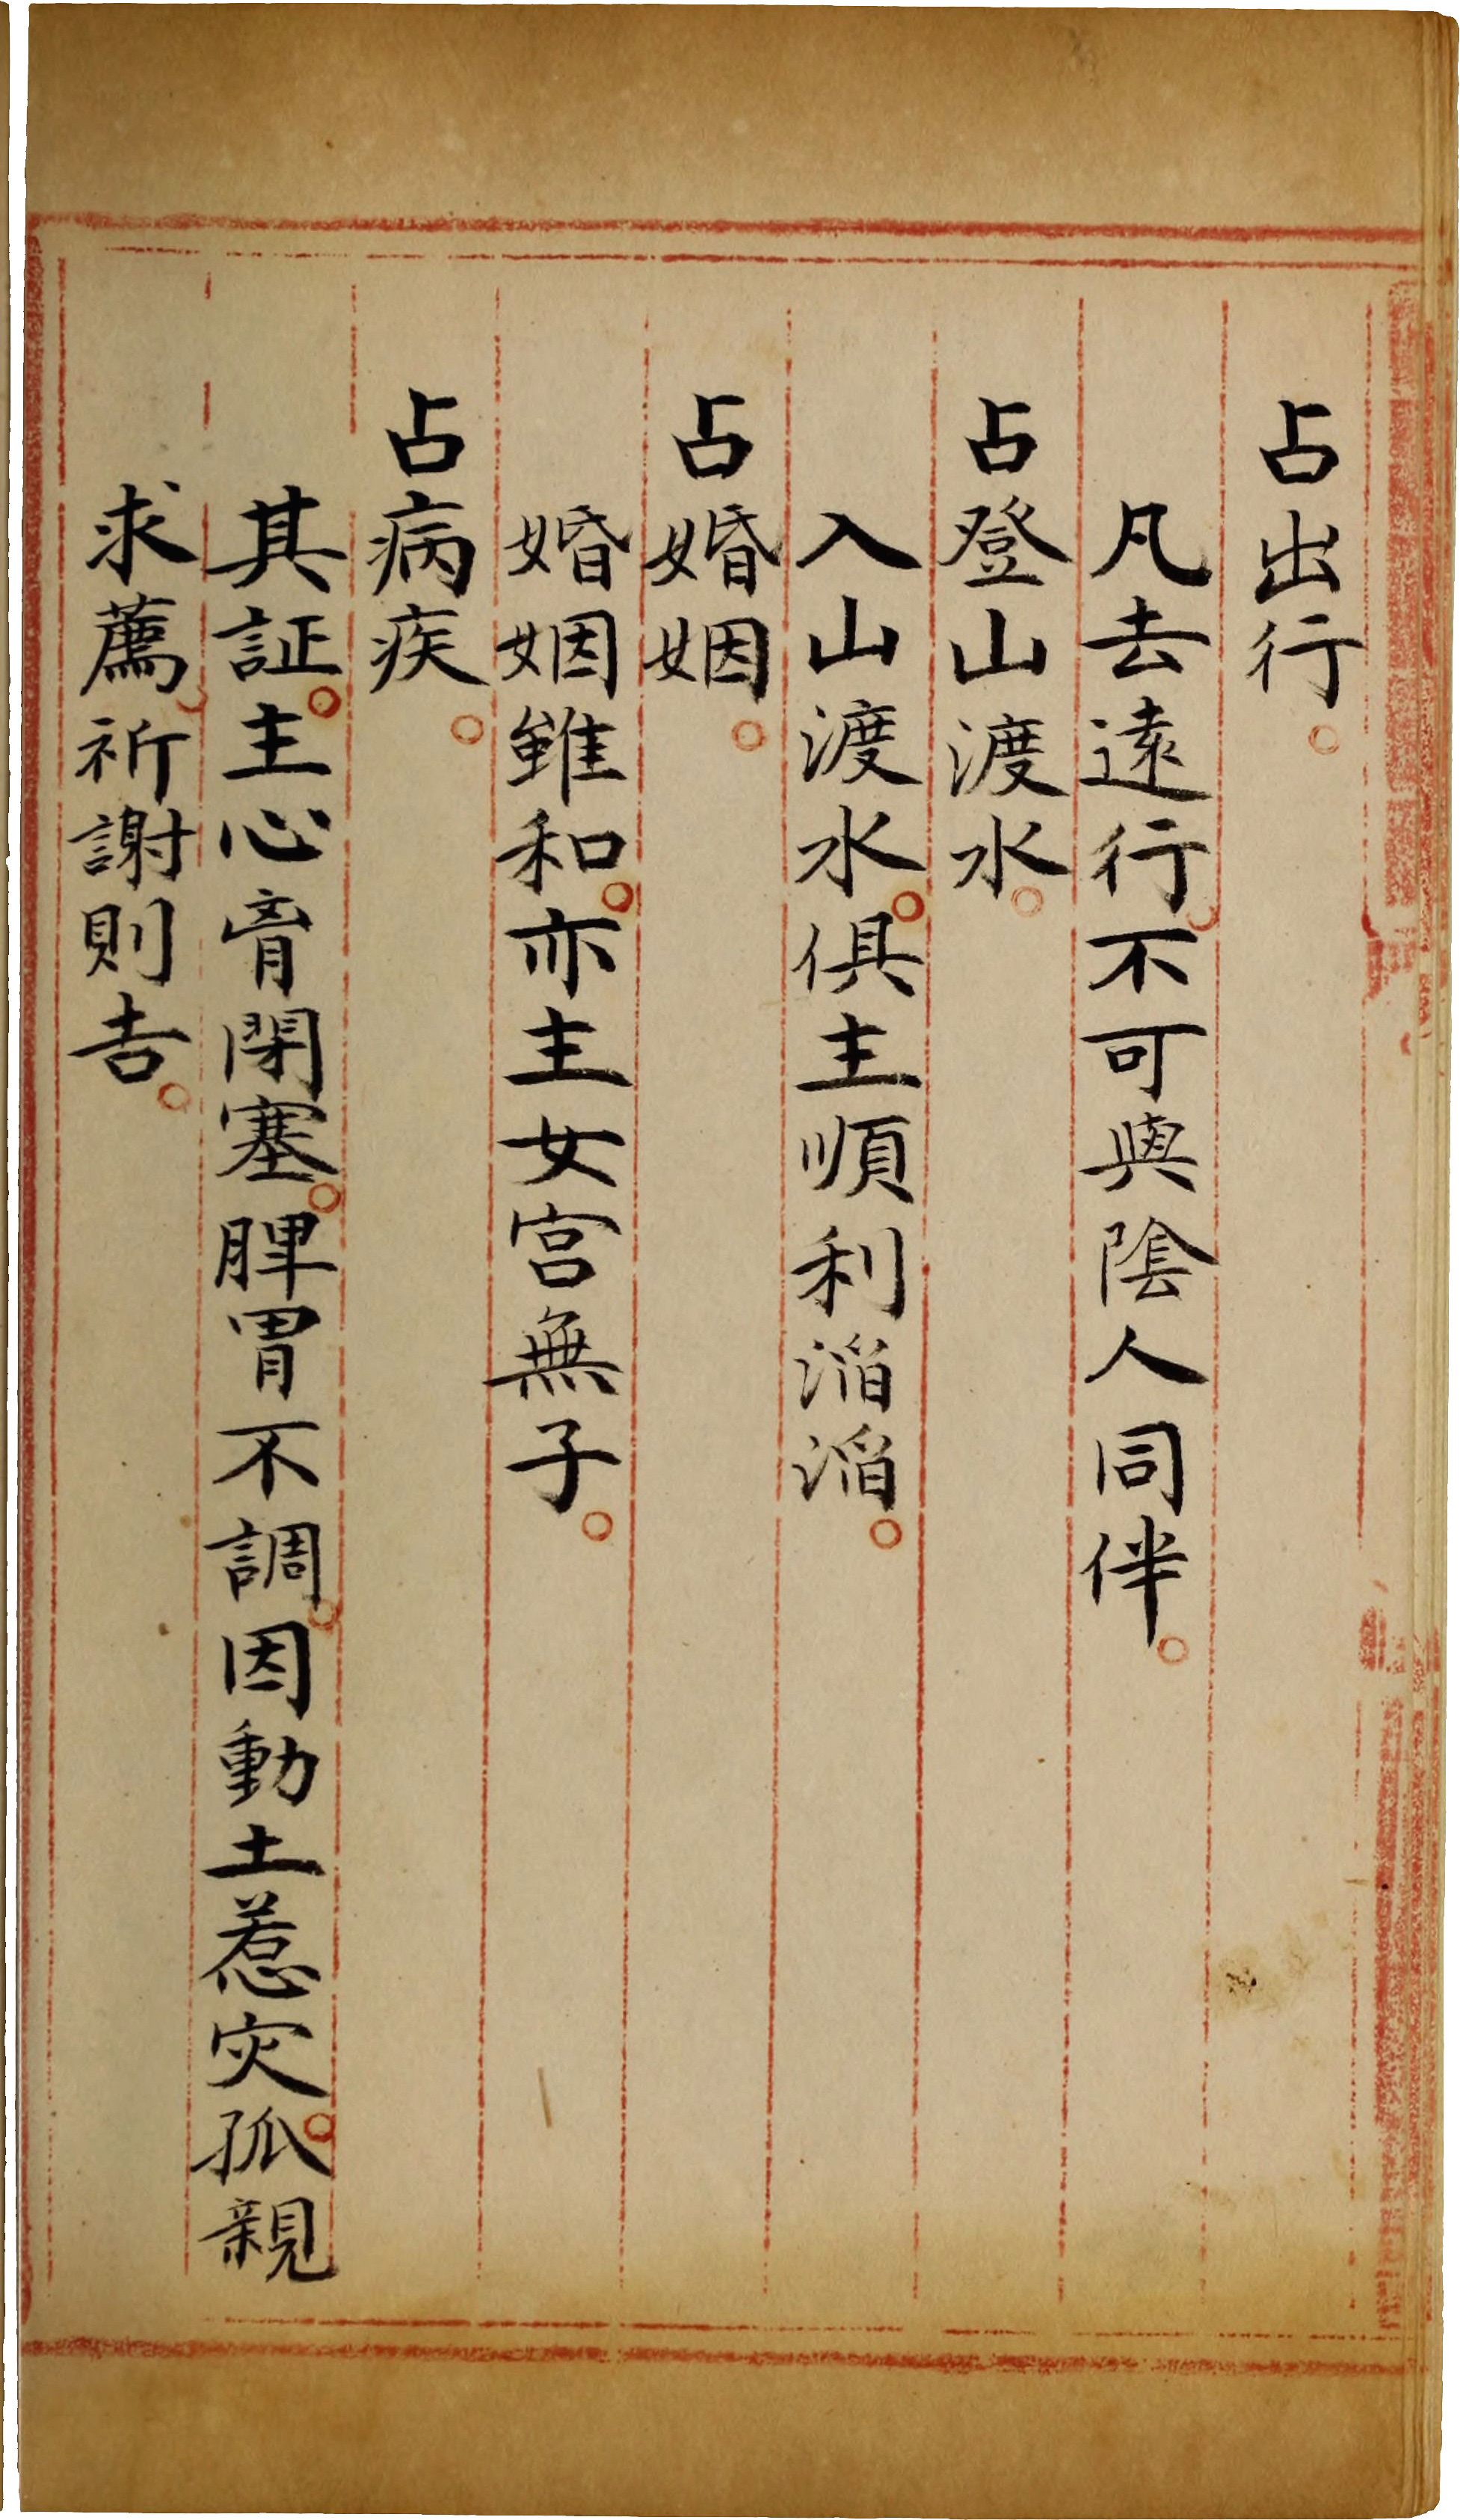 占出行。
凡去遠行。不可與陰人同伴。
占登山渡水。
入山渡水。俱主順利滔滔。
占婚姻。
婚姻雖和。亦主女宮無子。
占病疾。
其証。主心膏閉塞。脾胃不調。因動土惹灾。孤親
求薦。祈謝則吉。